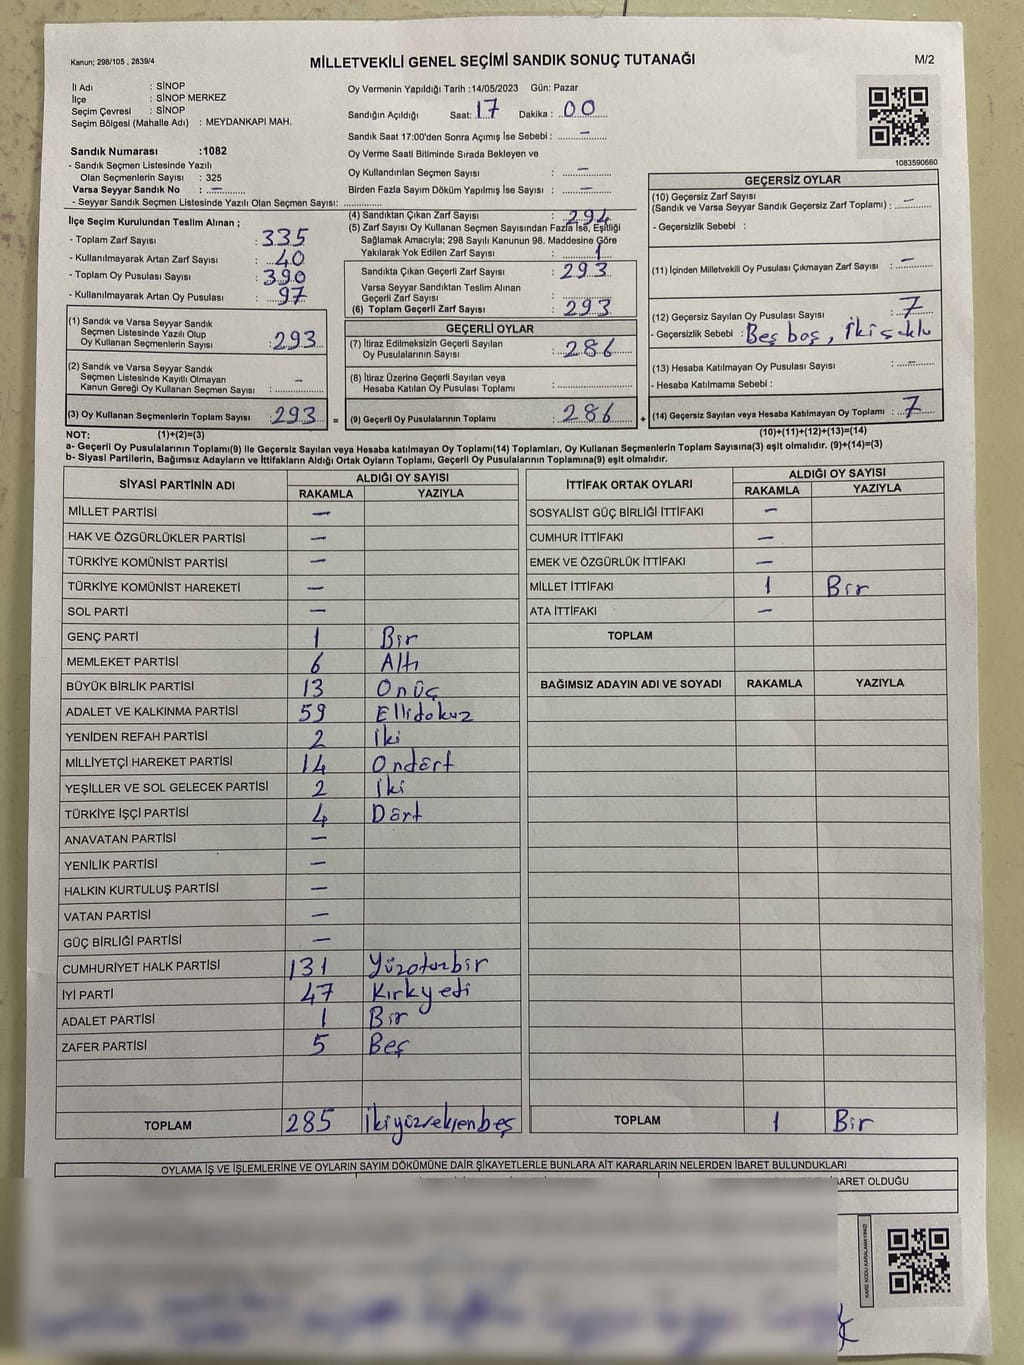 Kanun; 298/105 , 2839/4
MİLLETVEKİLİ GENEL SEÇİMİ SANDIK SONUÇ TUTANAĞI
M/2
İl Adı : SİNOP
İlçe : SİNOP MERKEZ
Seçim Çevresi : SİNOP
Seçim Bölgesi (Mahalle Adı) : MEYDANKAPI MAH.
Sandık Numarası :1082
- Sandık Seçmen Listesinde Yazılı
Olan Seçmenlerin Sayısı : 325
Varsa Seyyar Sandık No : –
- Seyyar Sandık Seçmen Listesinde Yazılı Olan Seçmen Sayısı: ..............
Oy Vermenin Yapıldığı Tarih :14/05/2023 Gün: Pazar
Sandığın Açıldığı Saat: 17 Dakika : 00
Sandık Saat 17:00'den Sonra Açımış İse Sebebi : –
Oy Verme Saati Bitiminde Sırada Bekleyen ve
Oy Kullandırılan Seçmen Sayısı : –
Birden Fazla Sayım Döküm Yapılmış İse Sayısı : –
1083590660
İlçe Seçim Kurulundan Teslim Alınan ;
- Toplam Zarf Sayısı : 335
- Kullanılmayarak Artan Zarf Sayısı : 40
- Toplam Oy Pusulası Sayısı : 390
- Kullanılmayarak Artan Oy Pusulası : 97
(1) Sandık ve Varsa Seyyar Sandık
Seçmen Listesinde Yazılı Olup
Oy Kullanan Seçmenlerin Sayısı : 293
(2) Sandık ve Varsa Seyyar Sandık
Seçmen Listesinde Kayıtlı Olmayan
Kanun Gereği Oy Kullanan Seçmen Sayısı : –
(3) Oy Kullanan Seçmenlerin Toplam Sayısı : 293 =
(4) Sandıktan Çıkan Zarf Sayısı : 294
(5) Zarf Sayısı Oy Kullanan Seçmen Sayısından Fazla İse, Eşitliği
Sağlamak Amacıyla; 298 Sayılı Kanunun 98. Maddesine Göre
Yakılarak Yok Edilen Zarf Sayısı : 1
Sandıkta Çıkan Geçerli Zarf Sayısı : 293
Varsa Seyyar Sandıktan Teslim Alınan
Geçerli Zarf Sayısı :
(6) Toplam Geçerli Zarf Sayısı : 293
GEÇERLİ OYLAR
(7) İtiraz Edilmeksizin Geçerli Sayılan
Oy Pusulalarının Sayısı : 286
(8) İtiraz Üzerine Geçerli Sayılan veya
Hesaba Katılan Oy Pusulası Toplamı :
(9) Geçerli Oy Pusulalarının Toplamı : 286 +
GEÇERSİZ OYLAR
(10) Geçersiz Zarf Sayısı
(Sandık ve Varsa Seyyar Sandık Geçersiz Zarf Toplamı) : –
- Geçersizlik Sebebi :
(11) İçinden Milletvekili Oy Pusulası Çıkmayan Zarf Sayısı : –
(12) Geçersiz Sayılan Oy Pusulası Sayısı : 7
- Geçersizlik Sebebi : Beş boş, iki şeklu
(13) Hesaba Katılmayan Oy Pusulası Sayısı : –
- Hesaba Katılmama Sebebi :
(14) Geçersiz Sayılan veya Hesaba Katılmayan Oy Toplamı : 7
NOT: (1)+(2)=(3)
(10)+(11)+(12)+(13)=(14)
a- Geçerli Oy Pusulalarının Toplamı(9) ile Geçersiz Sayılan veya Hesaba katılmayan Oy Toplamı(14) Toplamları, Oy Kullanan Seçmenlerin Toplam Sayısına(3) eşit olmalıdır. (9)+(14)=(3)
b- Siyasi Partilerin, Bağımsız Adayların ve İttifakların Aldığı Ortak Oyların Toplamı, Geçerli Oy Pusulalarının Toplamına(9) eşit olmalıdır.
SİYASİ PARTİNİN ADI ALDIĞI OY SAYISI
RAKAMLA YAZIYLA
MİLLET PARTİSİ –
HAK VE ÖZGÜRLÜKLER PARTİSİ –
TÜRKİYE KOMÜNİST PARTİSİ –
TÜRKİYE KOMÜNİST HAREKETİ –
SOL PARTİ –
GENÇ PARTİ 1 Bir
MEMLEKET PARTİSİ 6 Altı
BÜYÜK BİRLİK PARTİSİ 13 Onüç
ADALET VE KALKINMA PARTİSİ 59 Ellidokuz
YENİDEN REFAH PARTİSİ 2 İki
MİLLİYETÇİ HAREKET PARTİSİ 14 Ondört
YEŞİLLER VE SOL GELECEK PARTİSİ 2 İki
TÜRKİYE İŞÇİ PARTİSİ 4 Dört
ANAVATAN PARTİSİ –
YENİLİK PARTİSİ –
HALKIN KURTULUŞ PARTİSİ –
VATAN PARTİSİ –
GÜÇ BİRLİĞİ PARTİSİ –
CUMHURİYET HALK PARTİSİ 131 Yüzotuzbir
İYİ PARTİ 47 Kırkyedi
ADALET PARTİSİ 1 Bir
ZAFER PARTİSİ 5 Beş
TOPLAM 285 İkiyüzseksenbeş
İTTİFAK ORTAK OYLARI ALDIĞI OY SAYISI
RAKAMLA YAZIYLA
SOSYALİST GÜÇ BİRLİĞİ İTTİFAKI –
CUMHUR İTTİFAKI –
EMEK VE ÖZGÜRLÜK İTTİFAKI –
MİLLET İTTİFAKI 1 Bir
ATA İTTİFAKI –
TOPLAM
BAĞIMSIZ ADAYIN ADI VE SOYADI RAKAMLA YAZIYLA
TOPLAM 1 Bir
OYLAMA İŞ VE İŞLEMLERİNE VE OYLARIN SAYIM DÖKÜMÜNE DAİR ŞİKAYETLERLE BUNLARA AİT KARARLARIN NELERDEN İBARET BULUNDUKLARI
BARET OLDUĞU
KARE KODU KARALAMAYINIZ!